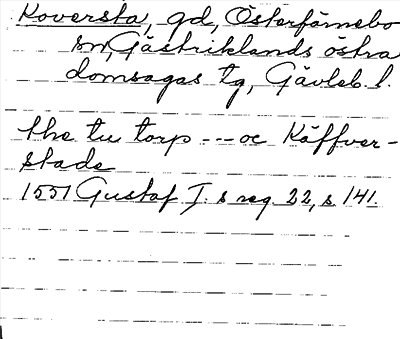 Koversta, gd, Österfärnebo
sn, Gästriklands östra
domsagas tg, Gävleb. l.
the tu torp --- oc Käffver-
stade
1551 Gustaf I. s reg. 22, s 141.